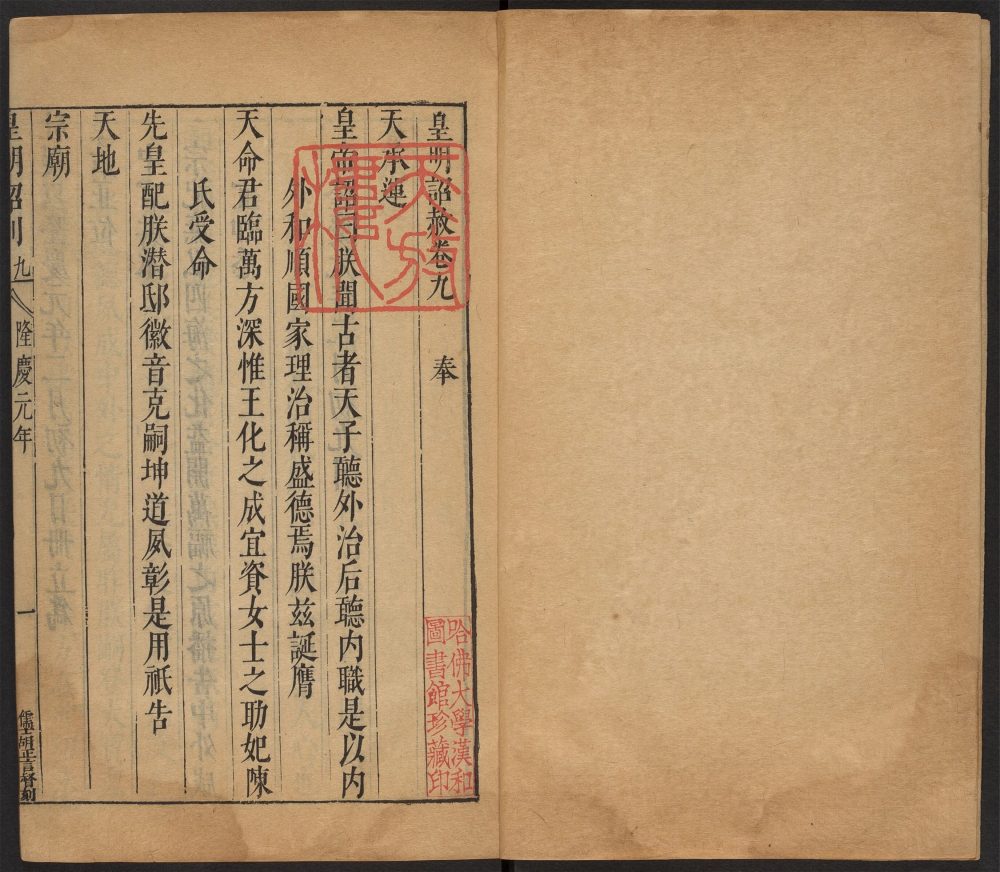 皇明詔赦卷九　奉
天承運
皇帝詔曰朕聞古者天子聽外治后聽内職是以内
外和順國家理治稱盛德焉朕茲誕膺
天命君臨萬方深惟王化之成宜資女士之助妃陳
氏受命
先皇配朕潛邸徽音克嗣坤道夙彰是用祗告
天地
宗廟
皇明詔制　九　隆慶元年　一
胡正言督刻
天放
哈佛大學漢和
圖書館珍藏印